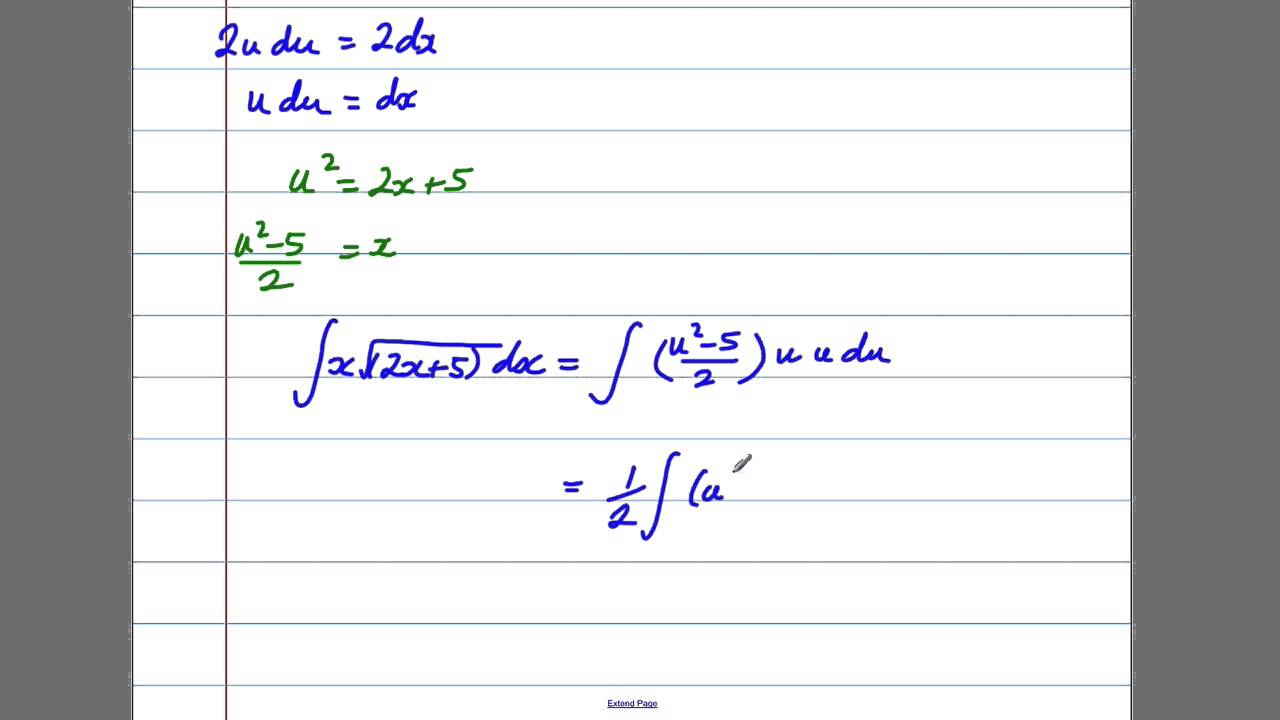 2u du = 2dx
u du = dx
u² = 2x+5
(u²-5)/2 = x
∫x√(2x+5) dx = ∫((u²-5)/2) u u du
= 1/2 ∫(u
Extend Page